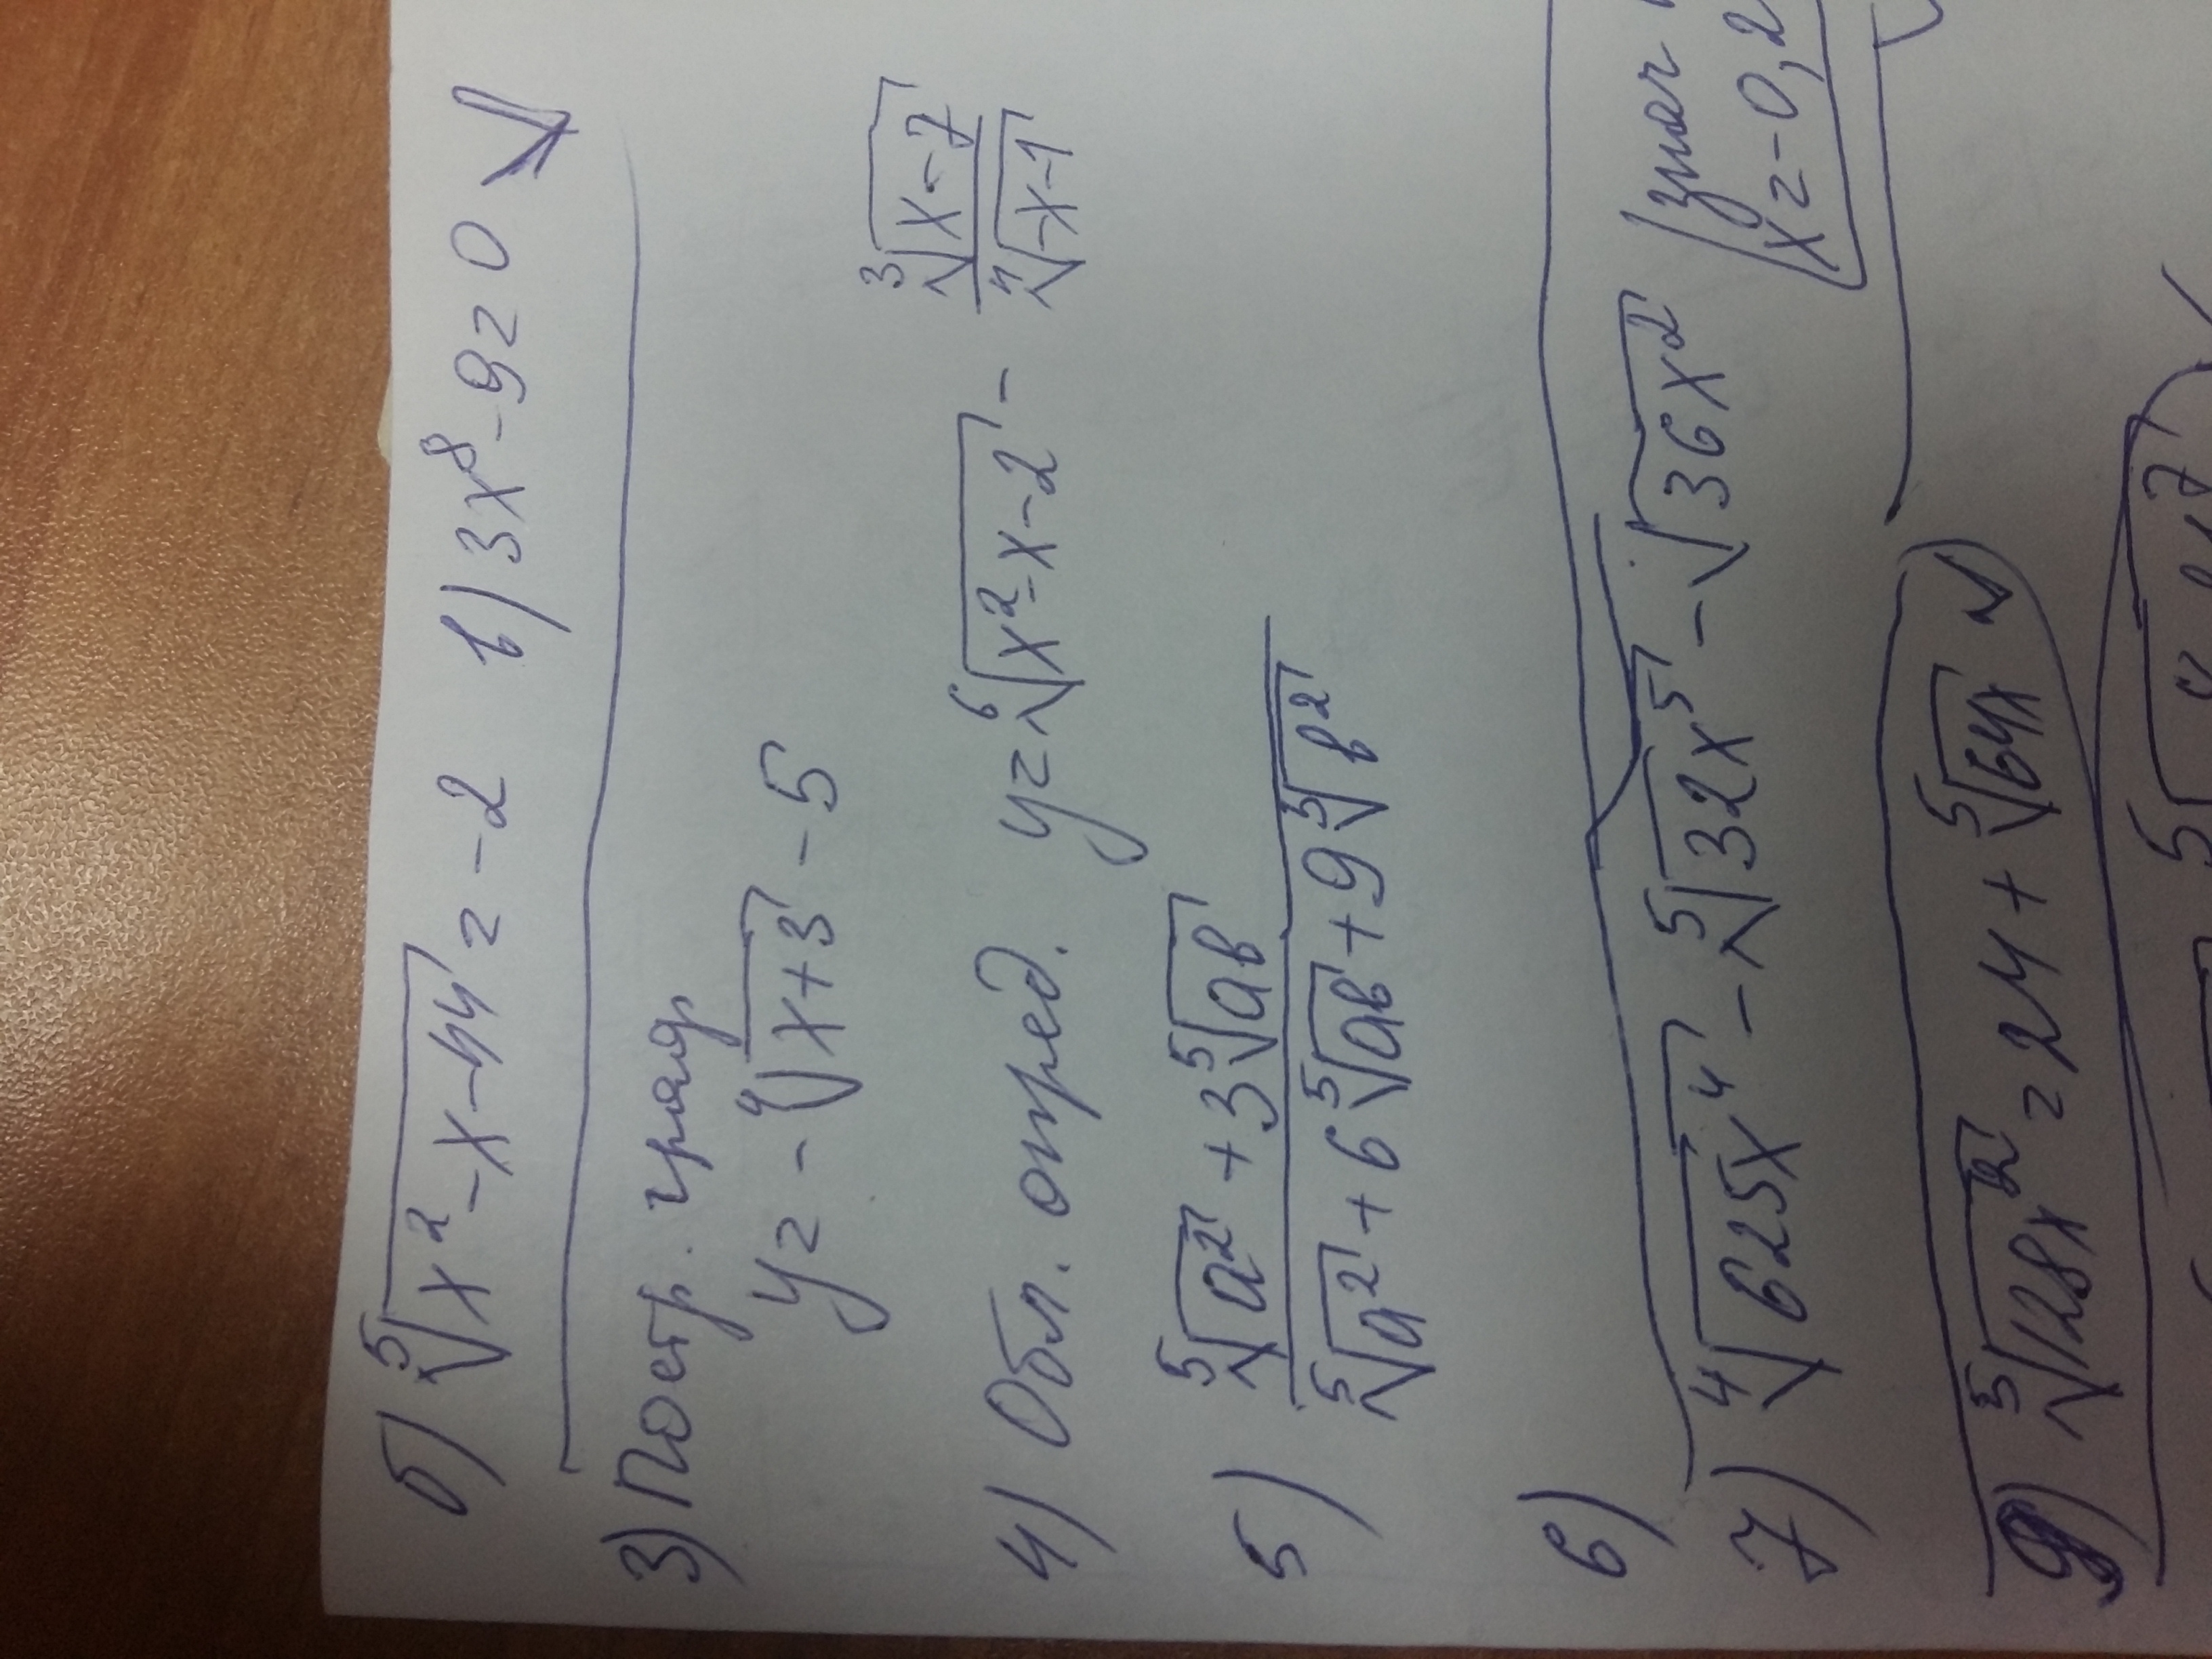 б) ⁵√(x² - x - 44) = -2 в) 3x⁸ - 9 = 0
3) Постр. граф
y = - ⁴√(x+3) - 5
4) Обл. опред. y = ⁶√(x² - x - 2) - ³√(x - 7) / ⁴√(-x - 1)
5) (⁵√a² + 3 ⁵√ав) / (⁵√a² + 6 ⁵√ав + 9 ⁵√в²)
6)
7) ⁴√(625x⁴) - ⁵√(32x⁵) - √(36x²) знач
x = -0,2
9) ⁵√(128x²) = 24 + ⁵√(64x)
5